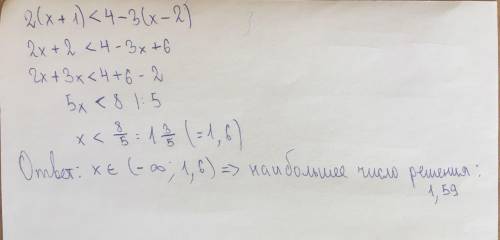 2(x+1)<4-3(x-2)
2x+2<4-3x+6
2x+3x<4+6-2
5x<8 |:5
x< 8/5 = 1 3/5 (=1,6)
Ответ: x∈(-∞; 1,6) => наибольшее число решения:
1,59